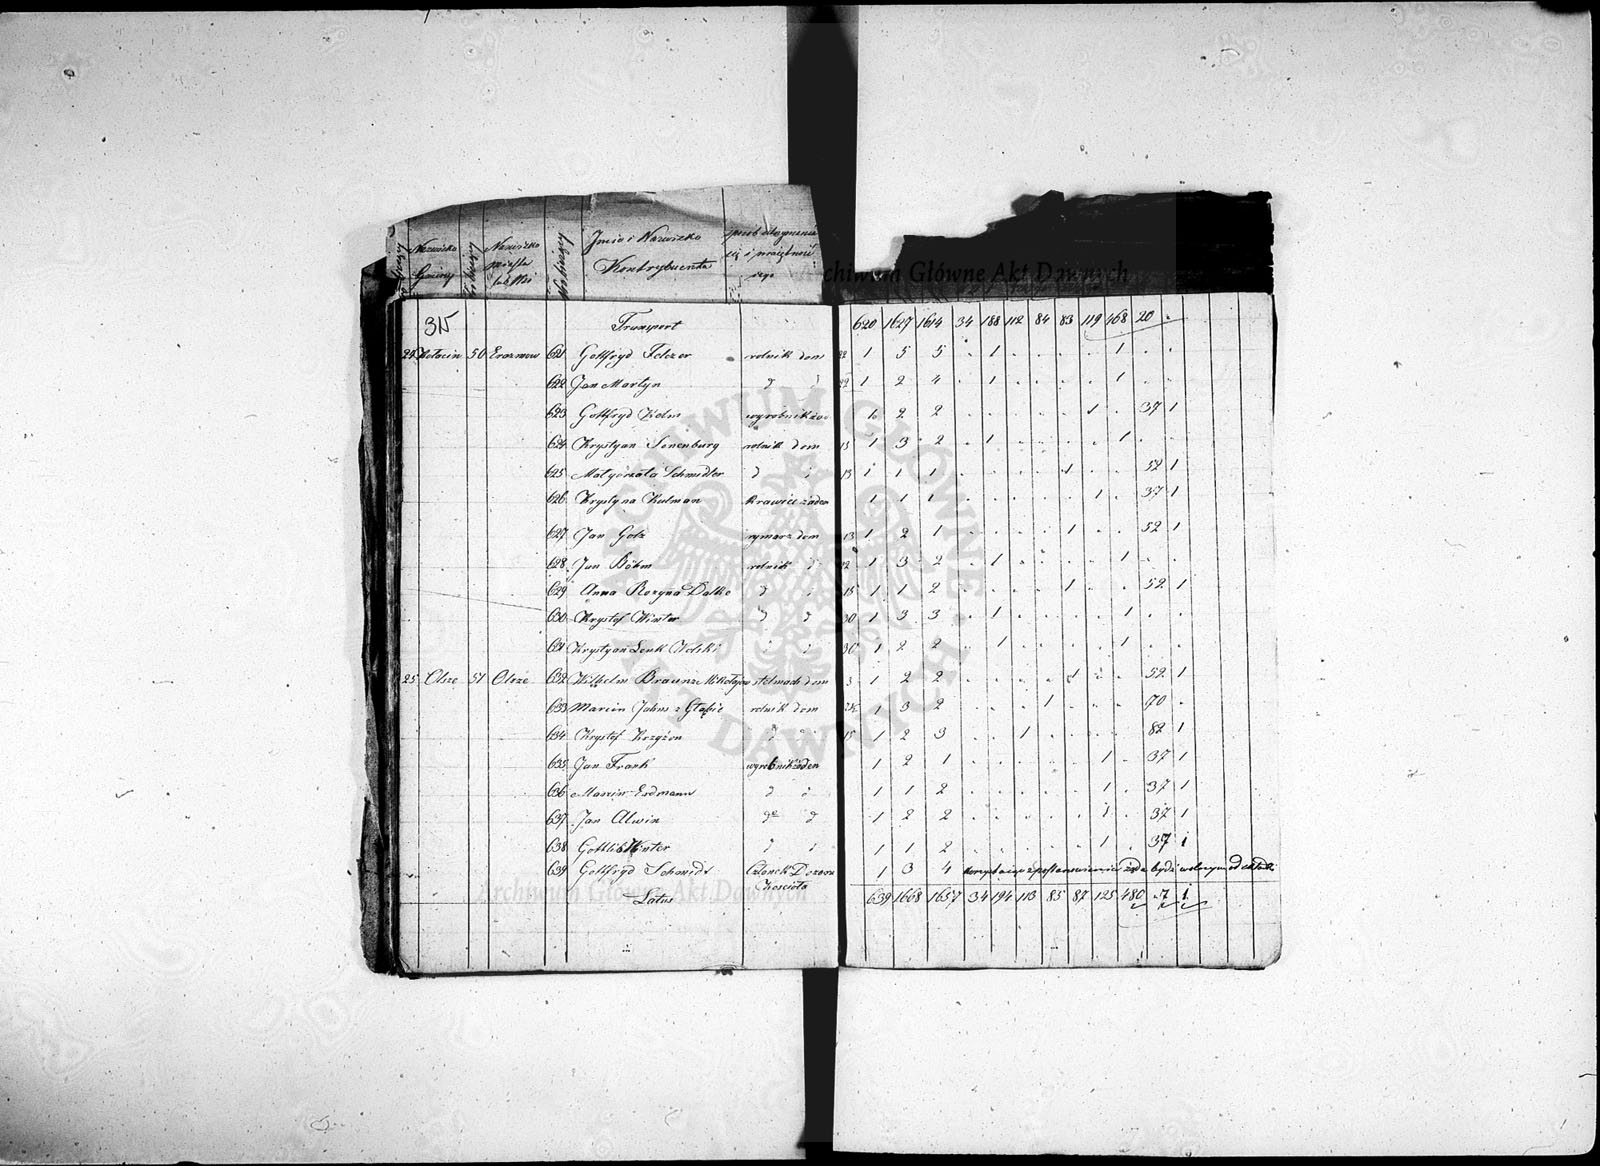 Nazwisko Gminy
Nazwisko
Imie i Nazwisko
Kontrybuenta
Archiwum Główne Akt Dawnych
315 Transport 620 1627 1614 34 188 112 84 83 119 468 20 .
24 50 Erazmow 621 Gottfryd Felczer rolnik dom 22 1 5 5 . 1 . . . . 1 . .
622 Jan Martyn d d 29 1 2 4 . 1 . . . . 1 . .
623 Gottfryd Kelm wyrobnik 1 2 2 . . . . . 1 . 37 1
624 Krystyan Sonenburg rolnik dom 15 1 3 2 . 1 . . . . 1 . .
625 Małgorzata Schmidler d 15 1 1 1 . . . . 1 . . 52 1
626 Krystyna Kulman Krawiec żaden 1 1 1 . . . . . 1 . 37 1
627 Jan Golz rymarz dom 13 1 2 1 . . . . 1 . . 52 1
628 Jan Böhm rolnik d 22 1 3 2 . 1 . . . . 1 . .
629 Anna Rozyna Dalke d 15 1 1 2 . . . . 1 . . 52 1
630 Krysztof Winter d d 30 1 3 3 . 1 . . . . 1 . .
631 Krystyan Lenk Wolski 30 1 2 2 . 1 . . . . 1 . .
25 Olsze 51 Olsze 632 Wilhelm Braunz Mikołajow stelmach dom 3 1 2 2 . . . . 1 . . 52 1
633 Marcin Jahns z Głąbie rolnik dom 1 3 2 . . . 1 . . . 70 .
634 Krysztof Krzyżon 15 1 2 3 . . 1 . . . . 82 1
635 Jan Frank wyrobnik żaden 1 2 1 . . . . . 1 . 37 1
636 Marcin Erdmann d 1 1 2 . . . . . 1 . 37 1
637 Jan Alwin d 1 2 2 . . . . . 1 . 37 1
638 Gottlib Winter 1 1 2 . . . . . 1 . 37 1
639 Gottfryd Schmidt Członek Dozoru 1 3 4
Kościoła
Latus 639 1668 1657 34 194 113 85 87 125 480 57 1
Archiwum Główne Akt Dawnych
ARCHIWUM GŁÓWNE • HO
AKT DAWNYCH